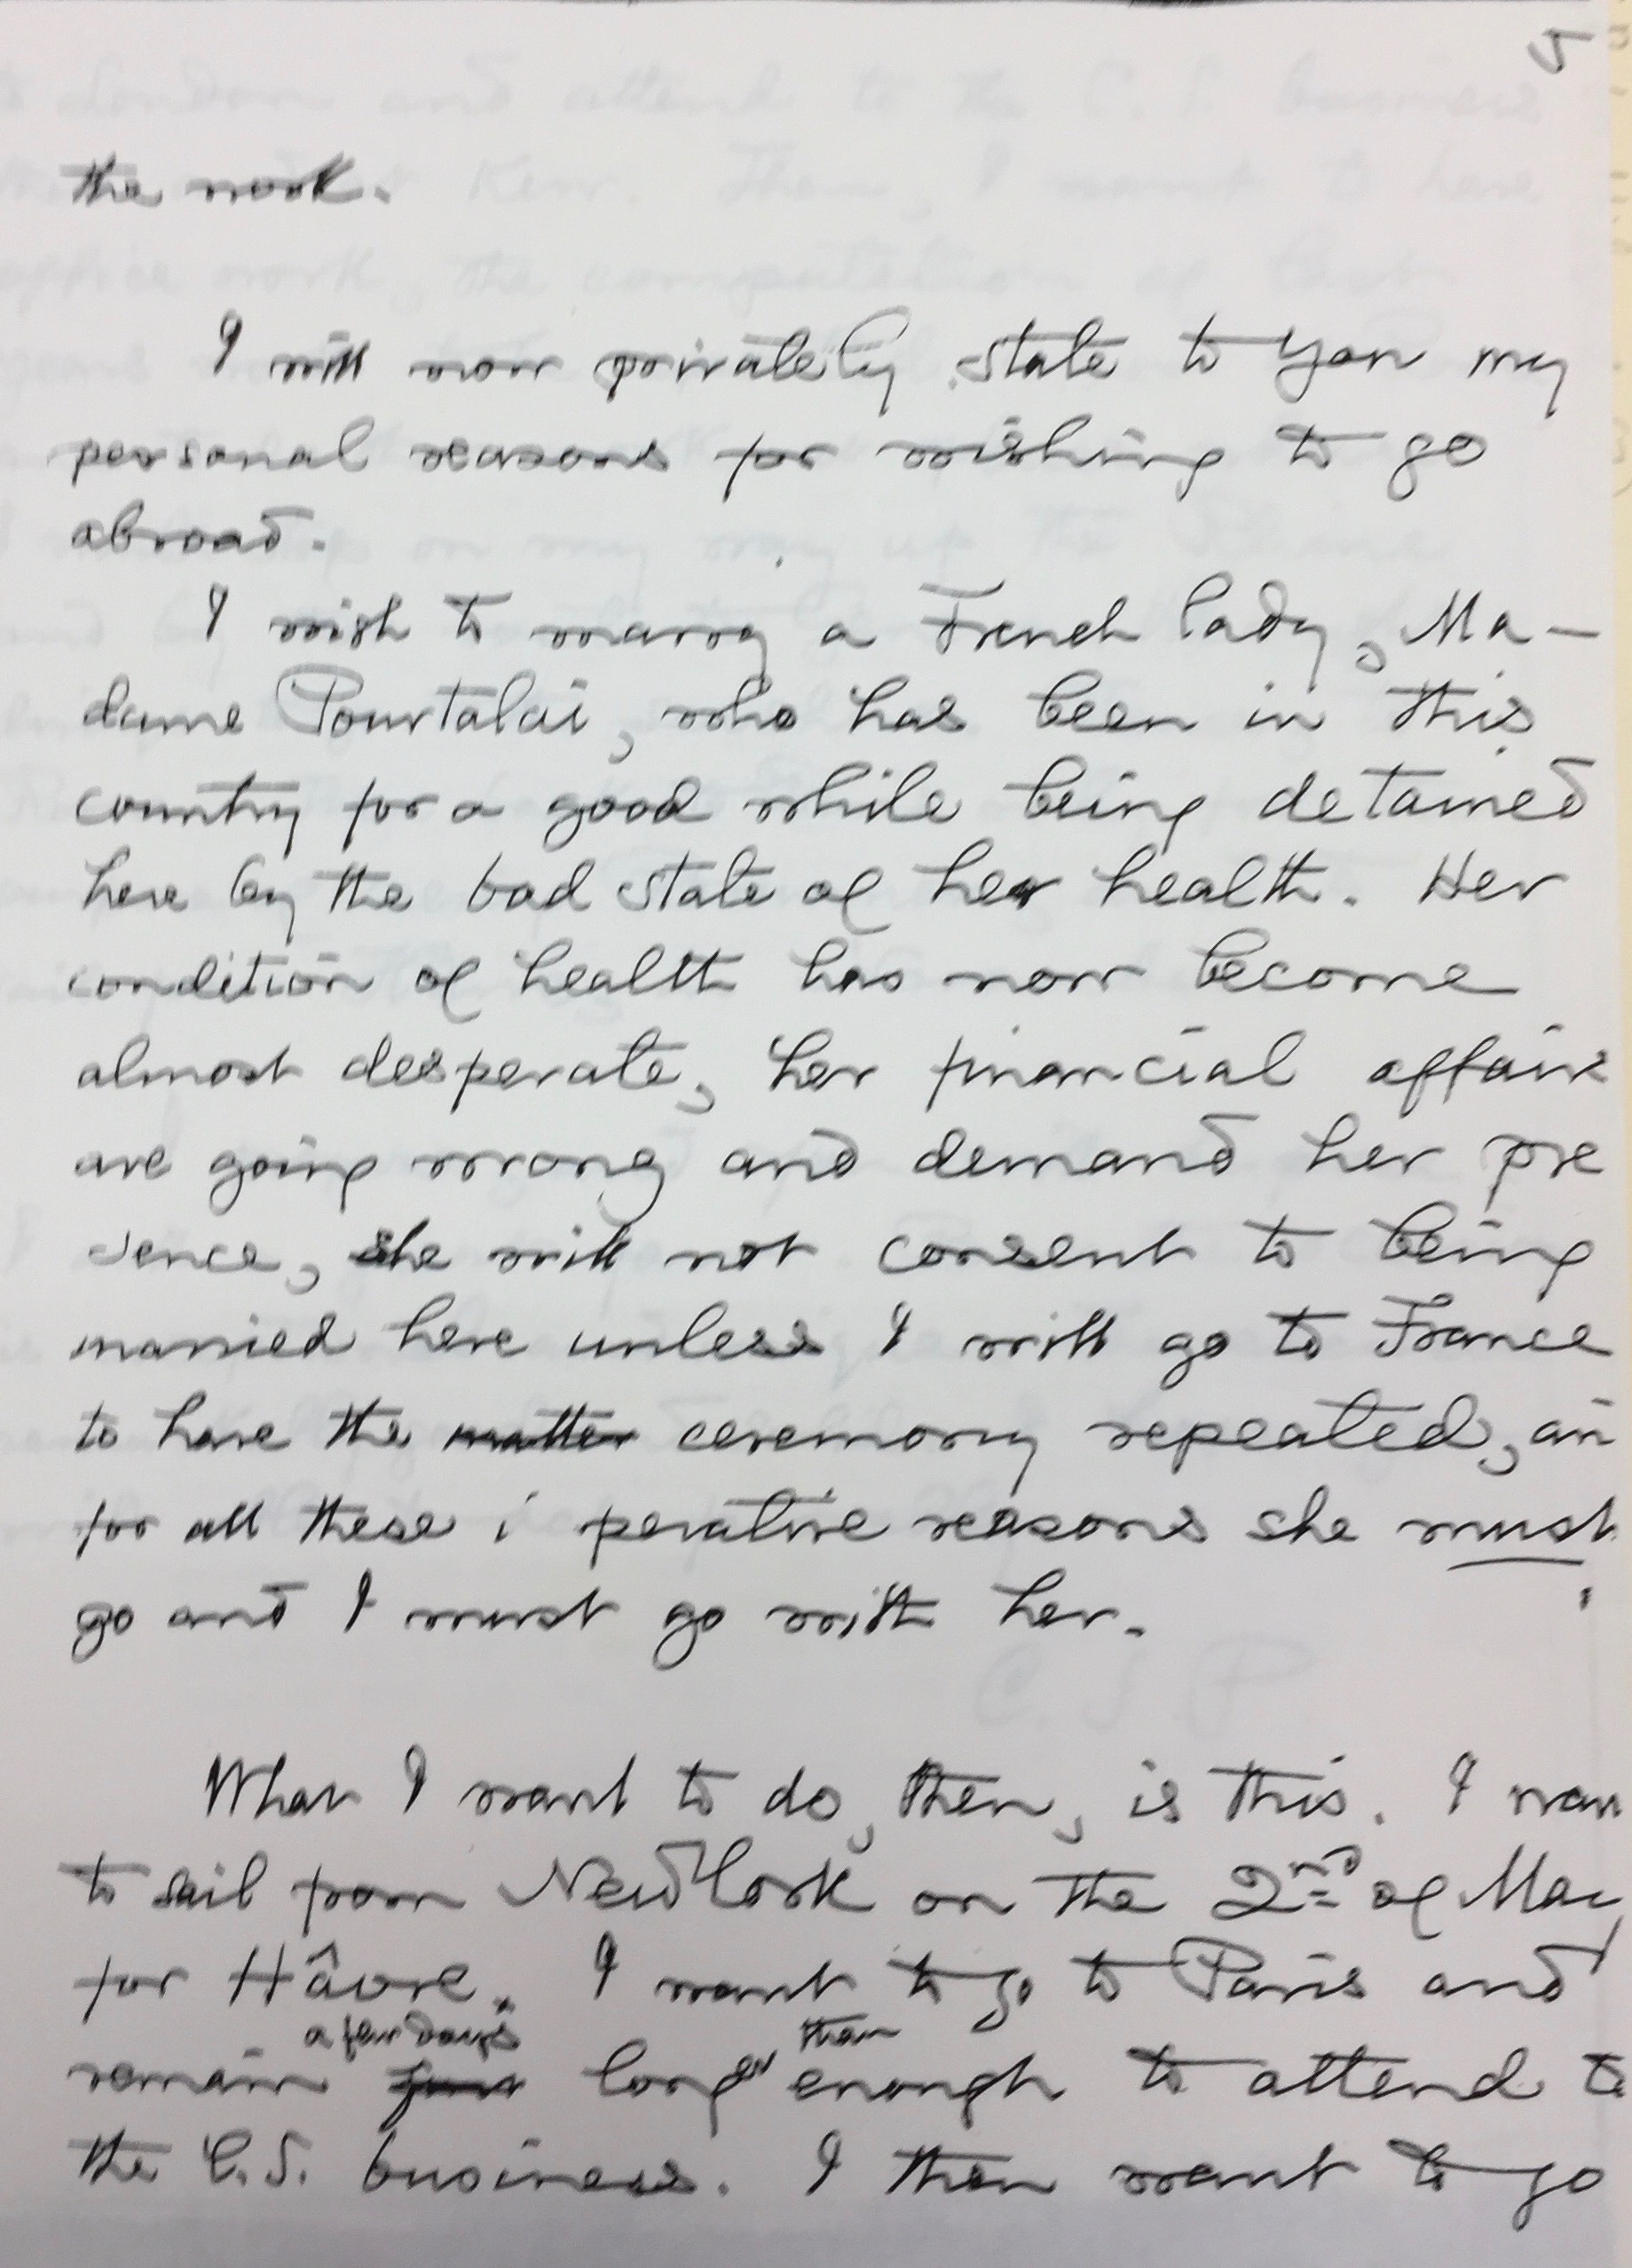 5
the work.
I will now privately state to you my
personal reasons for wishing to go
abroad.
I wish to marry a French lady, Ma-
dame Pourtalai, who has been in this
country for a good while being detained
here by the bad state of her health. Her
condition of health has now become
almost desperate, her financial affairs
are going wrong and demand her pre
sence, she will not consent to being
married here unless I will go to France
to have the matter ceremony repeated, an
for all these i perative reasons she must
go and I must go with her.
What I want to do, then, is this. I wan
to sail from New York on the 2nd of May
for Hâvre. I want to go to Paris and
a few days than
remain longer enough to attend to
the C.S. business. I then want to go